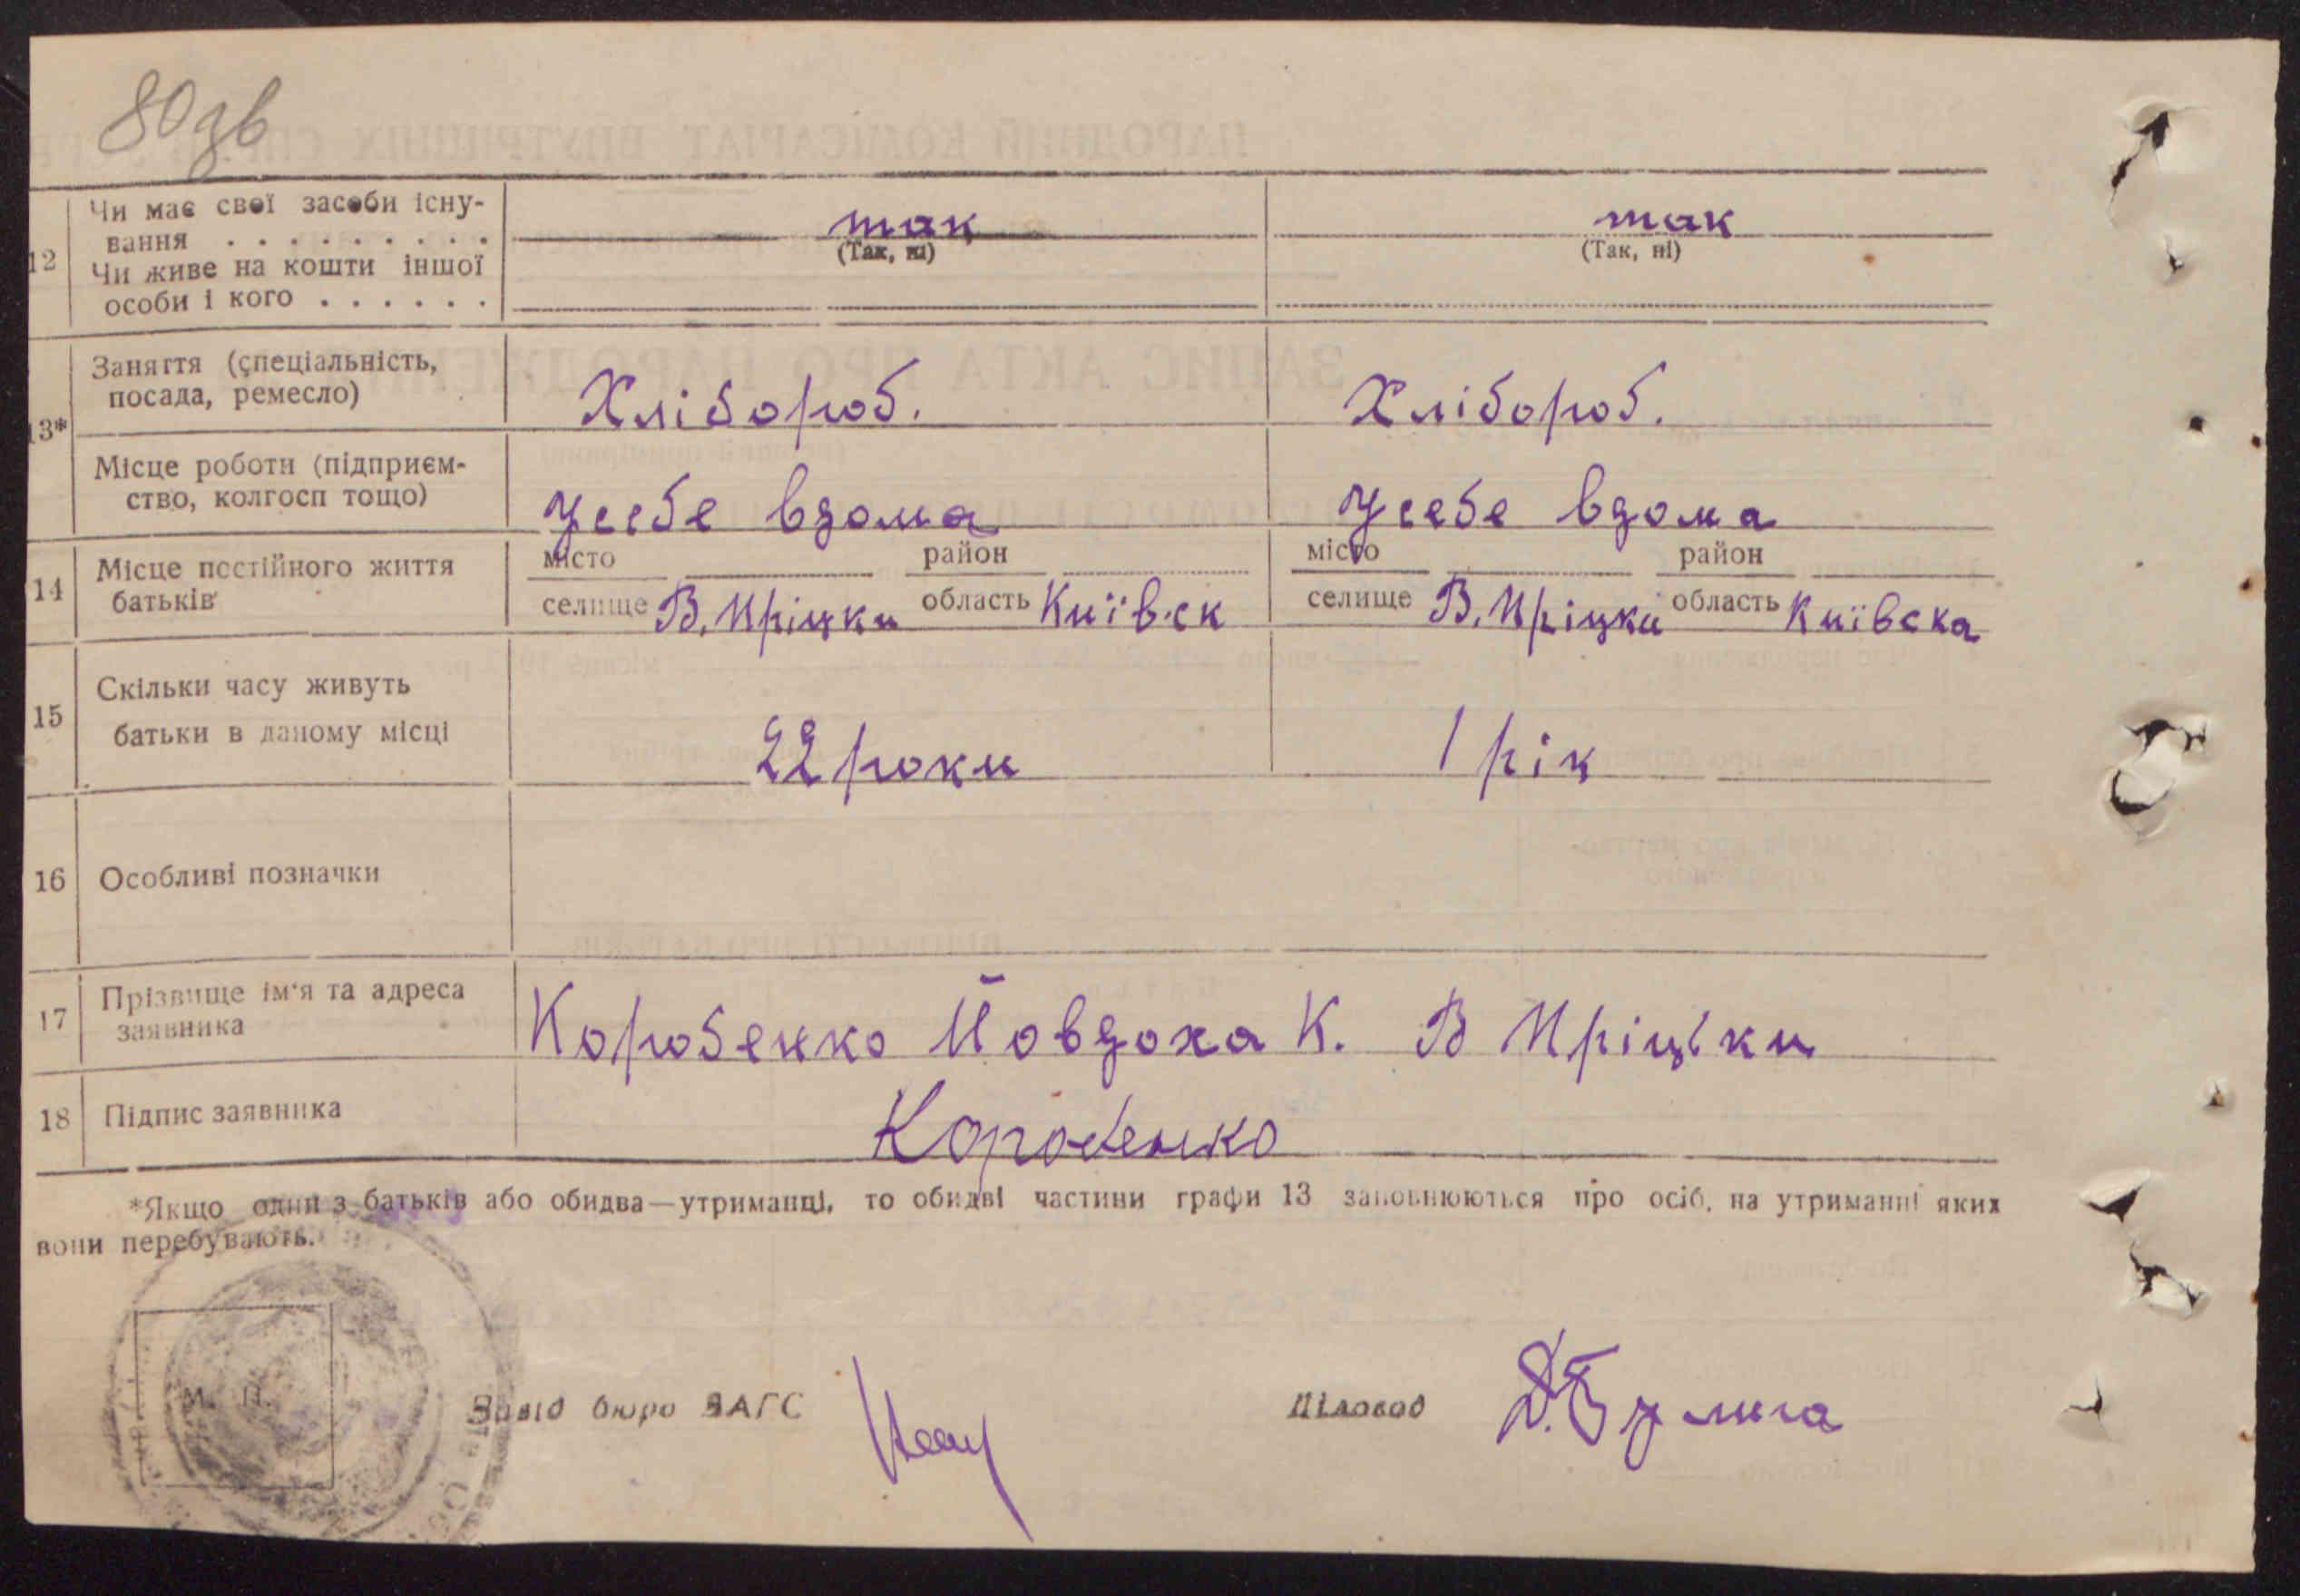 80зв
12 Чи має свої засоби існу-
вання . . . . . . . . . так так
(Так, ні) (Так, ні)
Чи живе на кошти іншої
особи і кого . . . . . .
13* Заняття (спеціальність,
посада, ремесло) Хлібороб. Хлібороб.
Місце роботи (підприєм-
ство, колгосп тощо) усебе вдома усебе вдома
14 Місце постійного життя місто район місто район
батьків селище В. Пріцки область Київ.ск селище В. Пріцки область Київска
15 Скільки часу живуть
батьки в даному місці 22 роки 1 рік
16 Особливі позначки
17 Прізвище ім'я та адреса
заявника Коробенко Йовдоха К. В Пріцьки
18 Підпис заявника Коробенко
*Якщо один з батьків або обидва—утриманці, то обидві частини графи 13 заповнюються про осіб, на утриманні яких
вони перебувають.
М. П.
Завід бюро ЗАГС Діловод